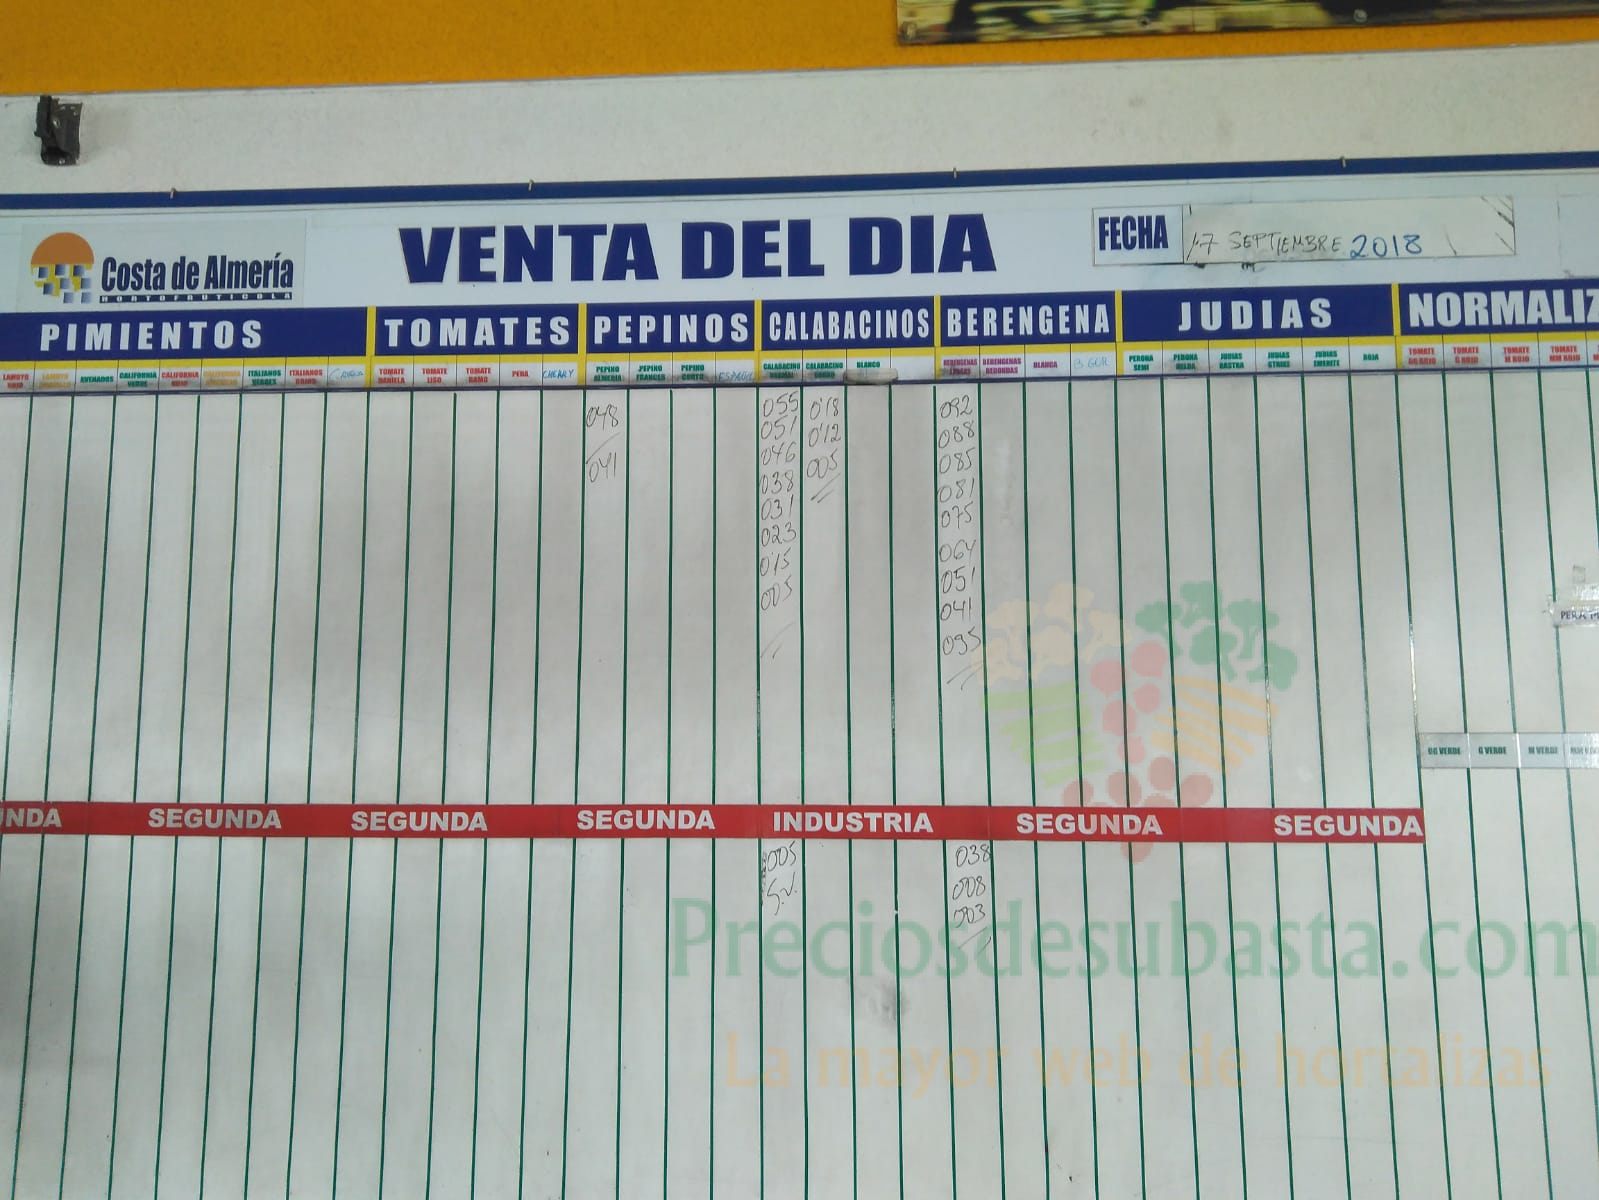 Costa de Almería
HORTOFRUTICOLA
VENTA DEL DIA
FECHA
17 SEPTIEMBRE 2018
PIMIENTOS TOMATES PEPINOS CALABACINOS BERENGENA JUDIAS NORMALIZ
LAMUYO ROJO
AVENADOS
CALIFORNIA VERDE
CALIFORNIA ROJO
ITALIANOS VERDES
ITALIANOS ROJOS
TOMATE DANIELA
TOMATE LISO
TOMATE RAMO
PERA
CHERRY
PEPINO ALMERIA
PEPINO FRANCES
PEPINO CORTO
ESPAÑOL
CALABACINO
CALABACINO GORDO
BLANCO
BERENGENAS LARGAS
BERENGENAS REDONDAS
BLANCA
B GOR
PERONA SEMI
PERONA
JUDIAS RASTRA
JUDIAS STRIKE
JUDIAS EMERITE
ROJA
TOMATE GG ROJO
TOMATE G ROJO
TOMATE M ROJO
TOMATE MM ROJO
048
041
055
051
046
038
031
023
0'15
005
0'18
0'12
005
092
088
085
081
075
064
051
041
035
PERA M
GG VERDE G VERDE M VERDE
UNDA SEGUNDA SEGUNDA SEGUNDA INDUSTRIA SEGUNDA SEGUNDA
005
S.V.
038
008
003
Preciosdesubasta.com
La mayor web de hortalizas